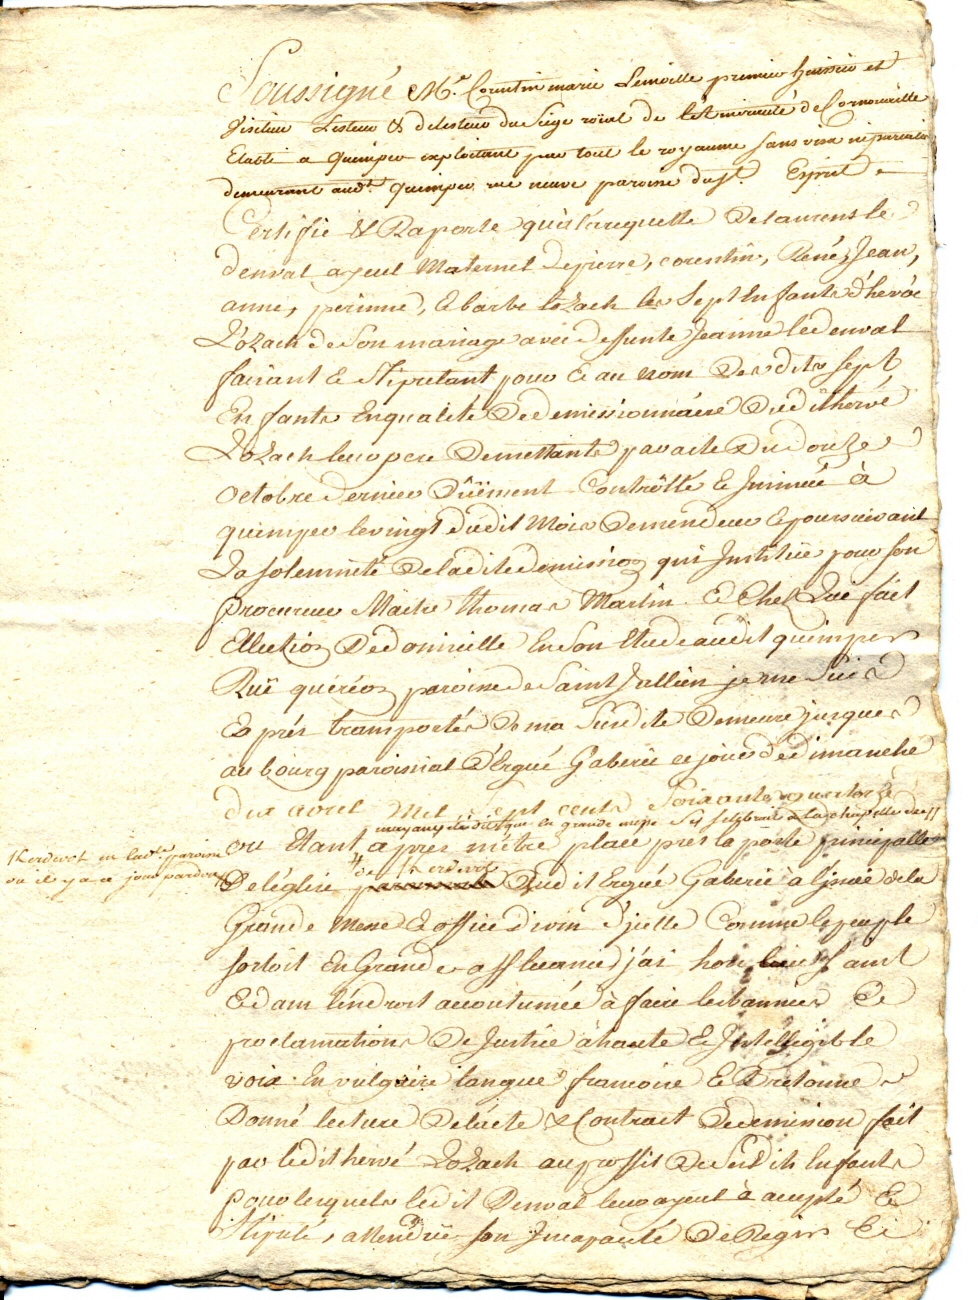 Soussigné Me Corentin marie Lemoille premier huissier et
Visiteur Lesteur & delesteur du Siege roial de l'Amirauté de Cornouaille
Etabli a Quimper exploitant par tout le royaume sans visa ni pareatis
demeurant audt quimper rue neuve paroisse du St Esprit
Certifie & Raporte qu'à la requette De Laurens le
denval ayeul Maternel de pierre, corentin, René, Jean,
anne, perinne, & barbe Lozach les Sept Enfants d'hervé
Lozach de Son mariage avec deffunte Jeanne le denval
faisant & Stipulant pour & au nom Desdits sept
Enfants En qualité De demissionnaire Dudit hervé
Lozach leur pere Demettant par acte Du douze
Octobre dernier Düement Controllé & Insinué à
quimper le vingt dudit Mois Demendeur & poursuivant
La solemnité De ladite demission qui Institüe pour son
procureur Maitre thomas Martin & Chez Lui fait
Ellection De domicille En Son Etude audit quimper
Ruë quéréon paroisse de Saint Jullien je me Suis
Exprés transporté De ma Susdite Demeure jusques
au bourg paroissial d'Ergué Gaberic ce jour de dimanche
dix avril Mil Sept cents Soixante quatorze
mayant été dit que la grande messe Se celebrait a la chapelle de
Kerdevot en ladte paroisse
où il y a ce jour pardon
ou Etant après m'être placé près la porte principalle
de Kerdevot
De l'église Dudit Ergué Gaberic à l'issue de la
Grande Messe & office divin d'icelle Comme le peuple
sortoit En Grande affluance j'ai hors lieu saint
& dans l'endroit accoutumé à faire les bannies &
proclamations De Justice à haute & Intelligible
voix En vulgaire langue françoise & Bretonne
Donné lecture De l'acte & Contract De demission fait
par ledit hervé Lozach au proffit De Sesdits Enfants
pour lesquels ledit Denval leur ayeul à accepté &
Stipulé, attendu son Incapacité De Regir &